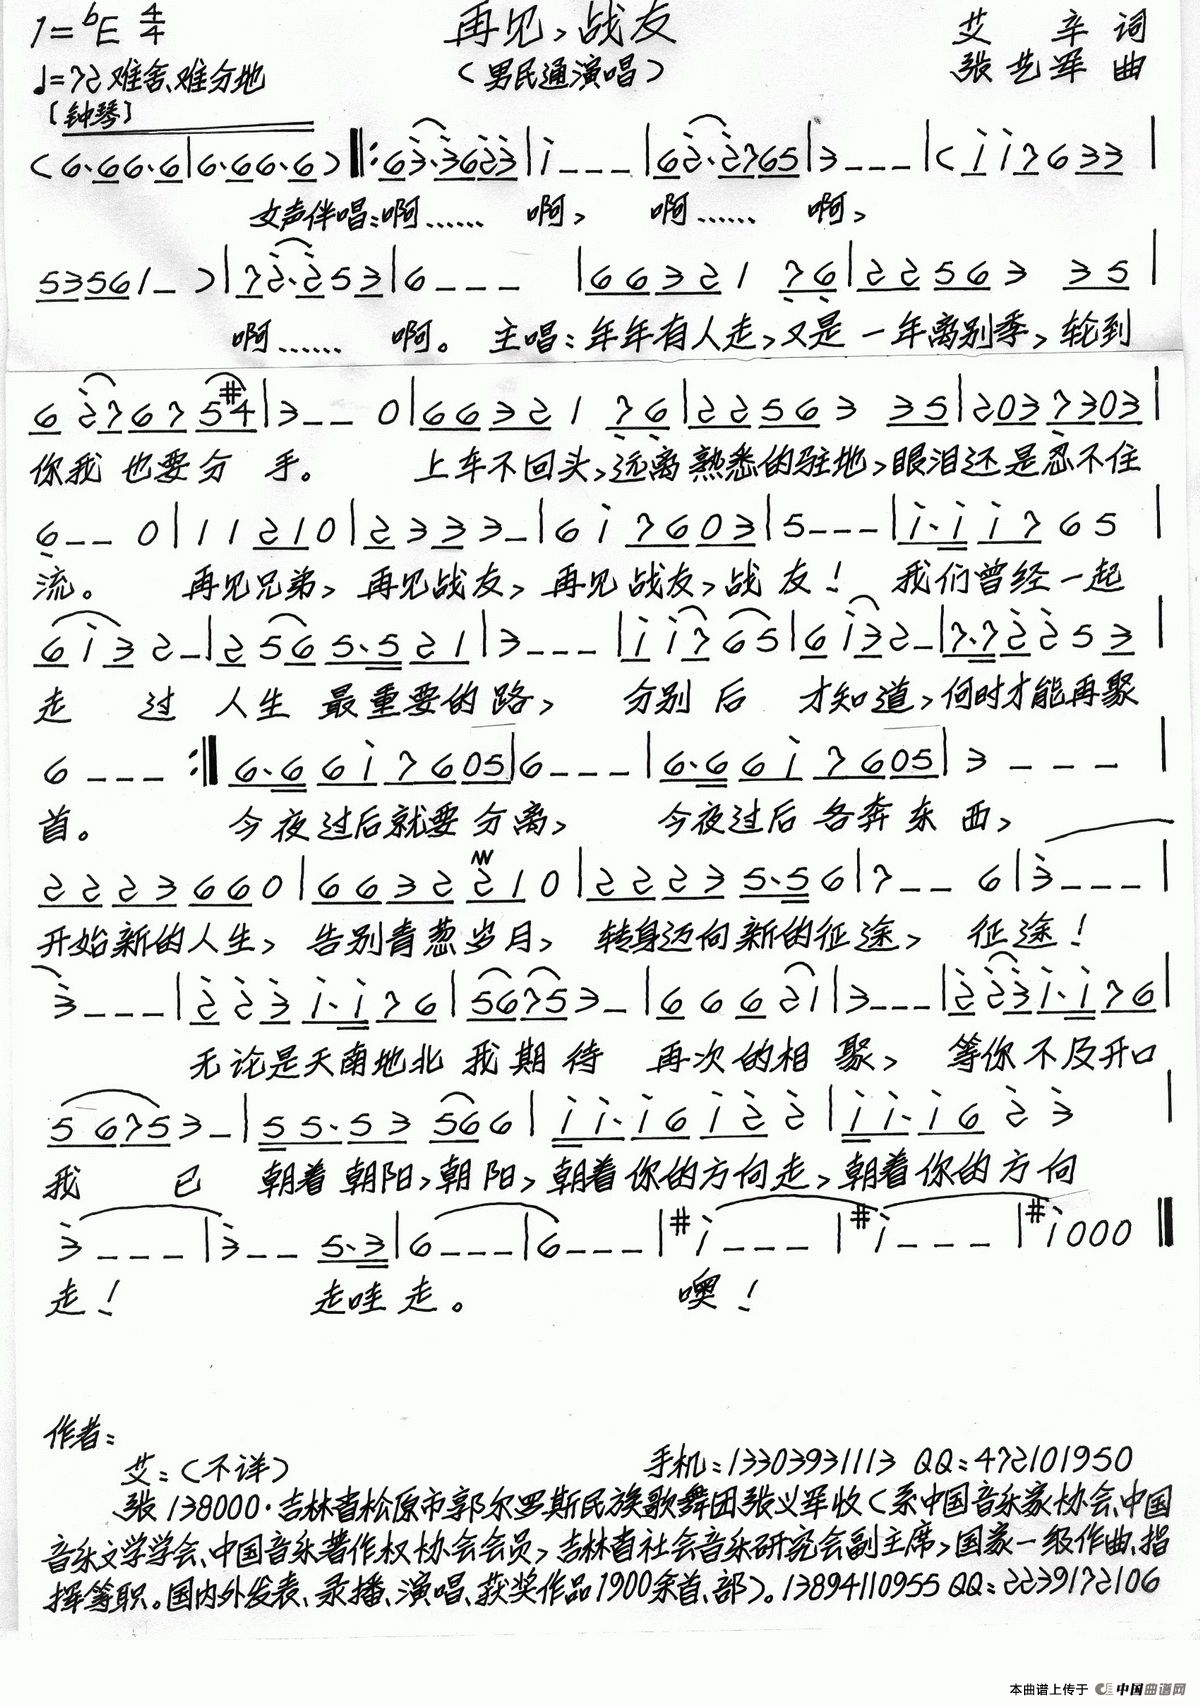 1=ᵇE 4/4 再见,战友 艾辛 词
♩=72 难舍、难分地 (男民通演唱) 张艺军 曲
[钟琴]
(6·66·6|6·66·6)‖:63·3623|1---|62·2765|3---|(117633|
女声伴唱:啊…… 啊, 啊…… 啊,
53561-)|72·253|6---|663217 6|22563 35|
啊…… 啊。 主唱:年年有人走,又是一年离别季,轮到
6276754|3--0|66321 76|22563 35|2037303|
你我也要分手。 上车不回头,远离熟悉的驻地,眼泪还是忍不住
6--0|11210|2333-|617603|5---|1·11765|
流。 再见兄弟,再见战友,再见战友,战友! 我们曾经一起
6132-|2565·521|3---|11765|6132-|7·72253|
走过人生最重要的路, 分别后才知道,何时才能再聚
6---:‖6·6617605|6---|6·6617605|3---|
首。 今夜过后就要分离, 今夜过后各奔东西,
2223660|6632210|22235·56|7--6|3---|
开始新的人生,告别青葱岁月,转身迈向新的征途,征途!
3---|2231·176|56753-|66621|3---|2231·176|
无论是天南地北我期待 再次的相聚, 等你不及开口
56753-|55·53566|11·16122|11·1623|
我已朝着朝阳,朝阳,朝着你的方向走,朝着你的方向
3---|3--5·3|6---|6---|#1---|#1---|#1000‖
走! 走哇走。 噢!
作者:
艾:(不详) 手机:13303931113 QQ:472101950
张 138000·吉林省松原市郭尔罗斯民族歌舞团张义军收(系中国音乐家协会、中国
音乐文学学会、中国音乐著作权协会会员,吉林省社会音乐研究会副主席,国家一级作曲、指
挥等职。国内外发表、录播、演唱、获奖作品1900余首、部)。13894110955 QQ:2239172106
本曲谱上传于 中国曲谱网